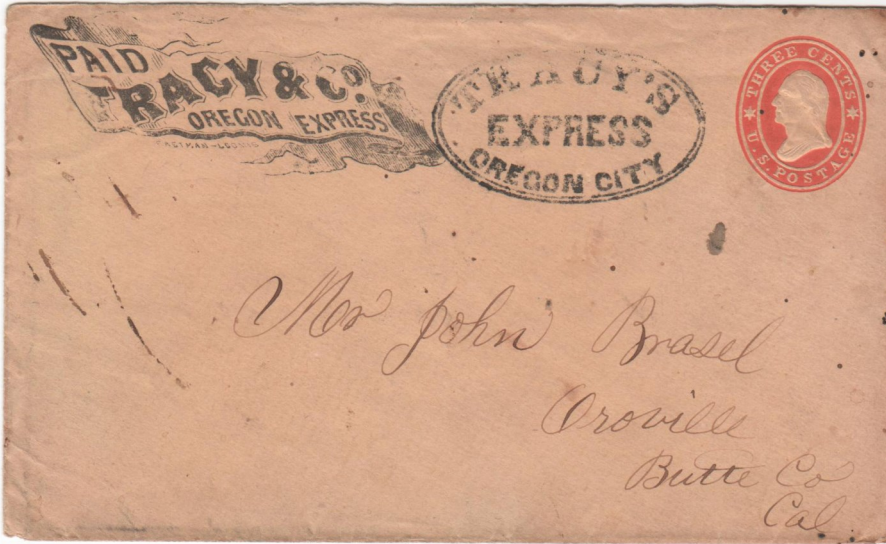 PAID
TRACY & CO.
OREGON EXPRESS
TRACY'S
EXPRESS
OREGON CITY
THREE CENTS
U.S. POSTAGE
Mr John Brasel
Oroville
Butte Co
Cal